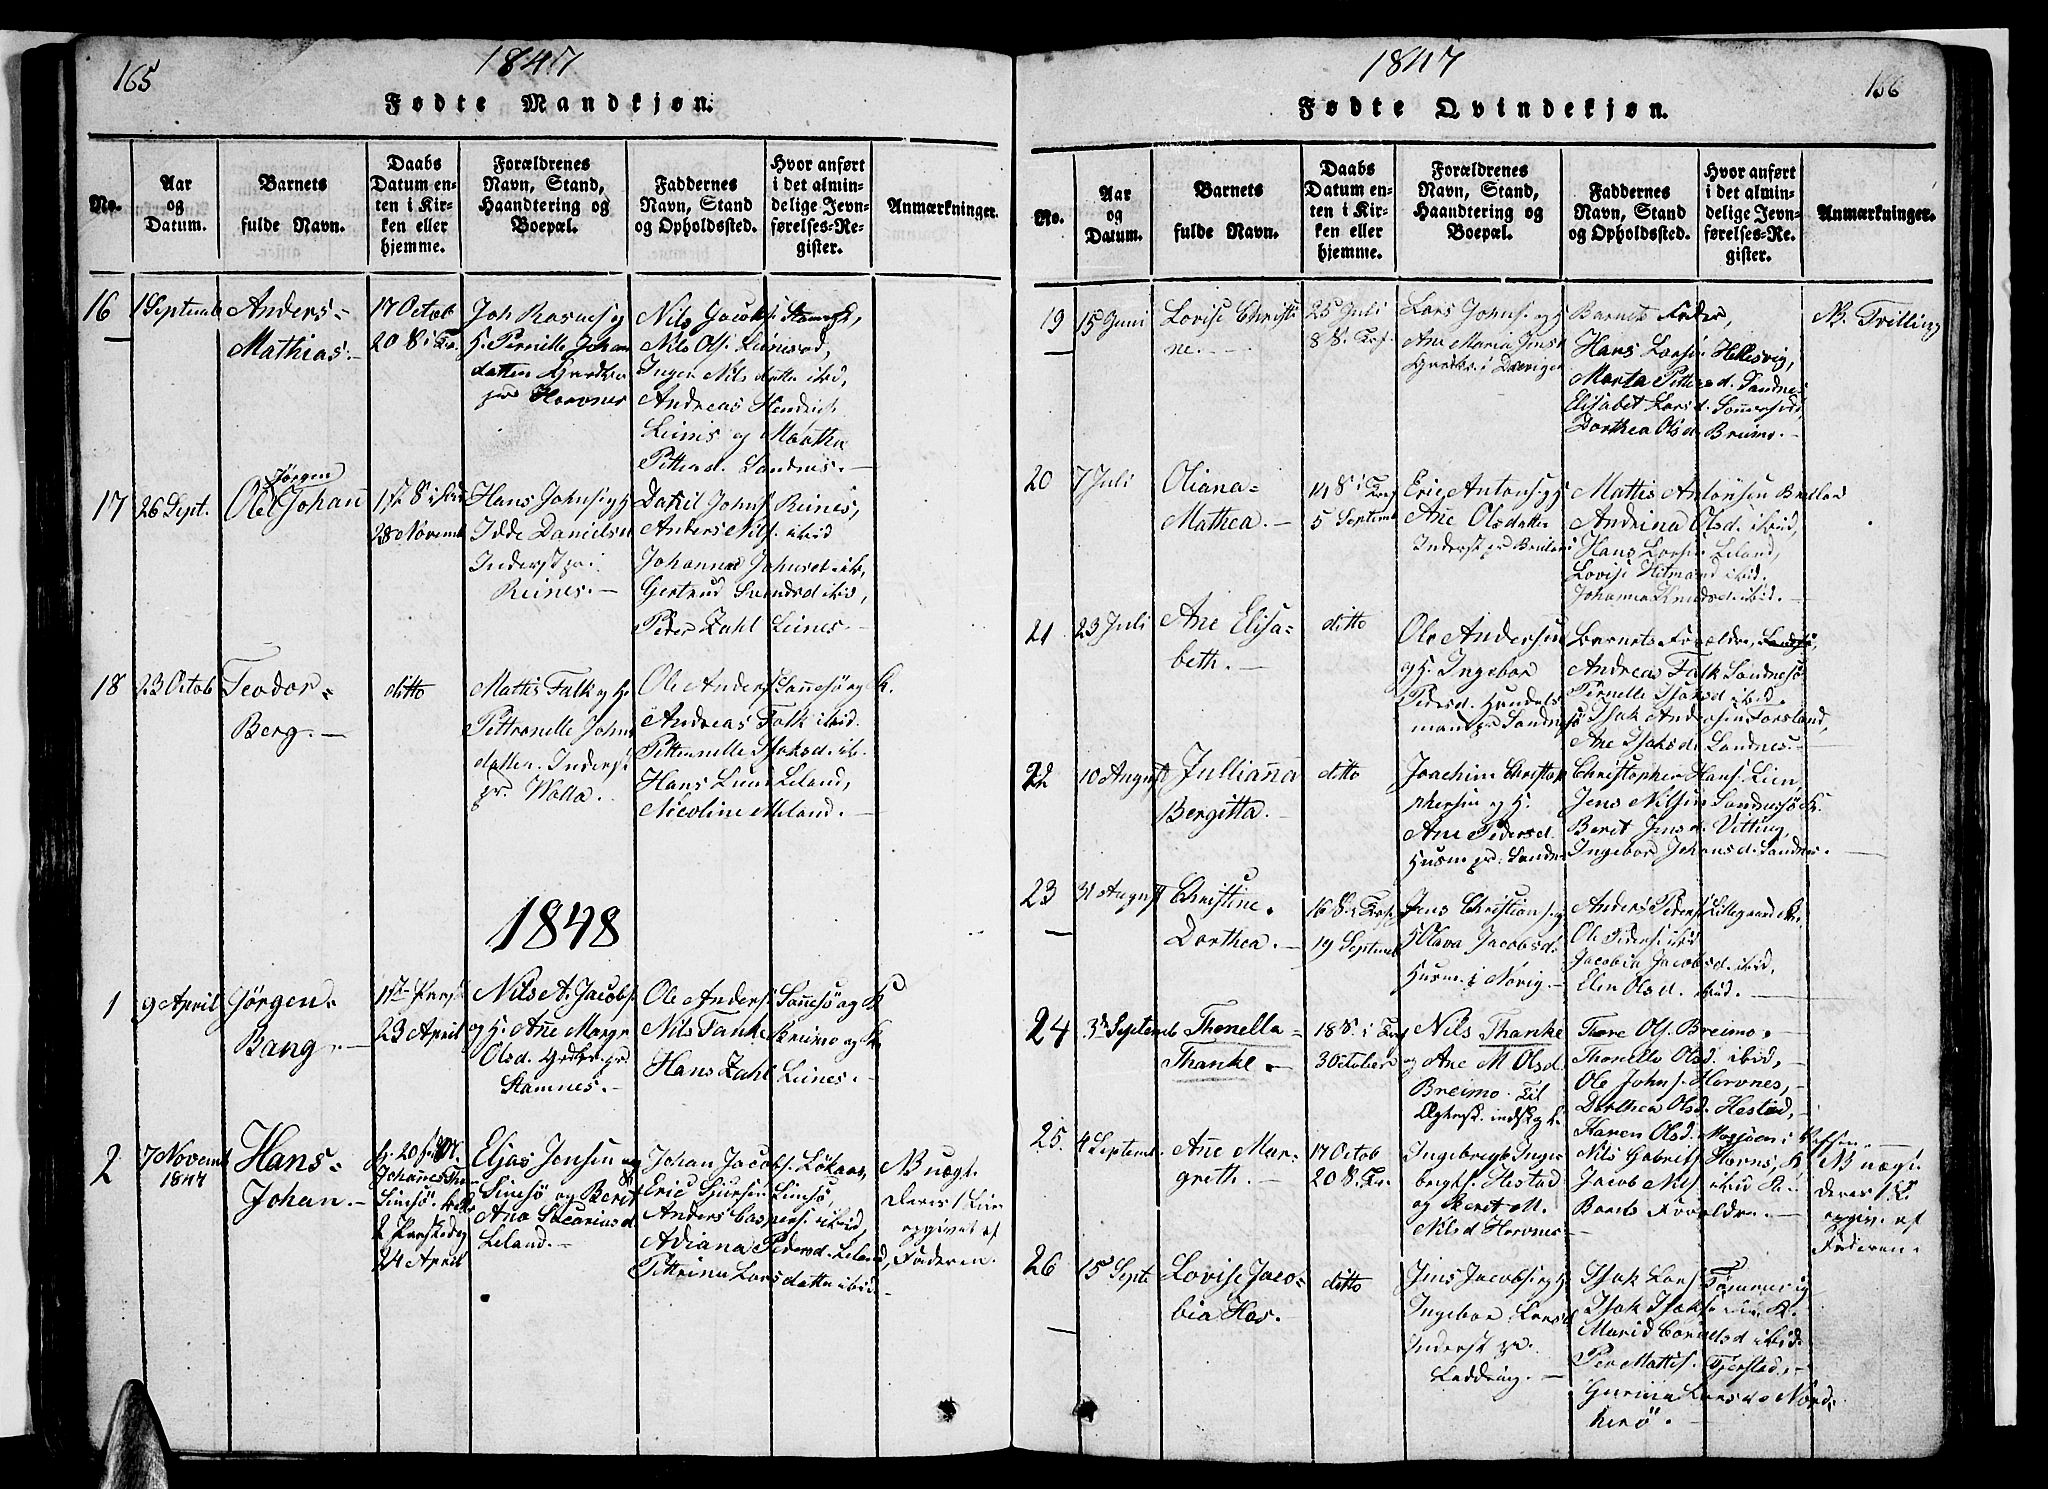 165
1847
Fødte Mandkjøn.
No.
Aar
og
Datum.
Barnets
fulde Navn.
Daabs
Datum en-
ten i Kir-
ken eller
hjemme.
Forældrenes
Navn, Stand,
Haandtering og
Boepæl.
Faddernes
Navn, Stand
og Opholdssted.
Hvor anført
i det almin-
delige Jevn-
førelses-Re-
gister.
Anmærkninger.
16
1 Septemb
Anders-
Mathias.-
17 Octob
20 S i Tr.
Joh Rasmus og
H. Pernille Johan
datten
paa Horvnes
Nils Jacobs. Stamnes,
Nils Ols. Leinesod,
Inger Nilsdatte ibid,
Andreas Hendrich
Leines og Martha
Pettersd. Sandnes.-
17
26 Sept.
Ole Jørgen Johan
1st S i
28 Novemb
Hans Johns. og H
Idde Danielsd
Inderst paa
Reines.-
Daniel Johns. Reines,
Anders Nils. ibid
Johannes ib,
Gertrud Svendsd ibid,
Peder Zahl Leines.-
18
23 Octob
Teodor-
Berg.-
ditto
Mattis Falk og H.
Pettronelle Johns
datten. Inderst
pr. Wolla.
Ole Anders. Sannesø og K.
Andreas Falk ibid.
Petternelle Isaksd. ib.
Hans Lund Leland,
Nicoline Meland.-
1848
1
9 April
Jørgen-
Bang.-
1st Paask
23 April
Nils A. Jacobs.
og H. Ane Margr
Olsd. pr
Stamnes.-
Ole Anders. Sannesø og K
Nils Fanke Breimo og K
Hans Zahl Leines.-
2
7 Novemb
1847
Hans-
Johan.-
Johannes
2 Paaskedag
24 April
Elias Jensen
og Berit
Ane Sacariasd
Leland.-
Johan Jacobs. Løkaas,
Eric Sjursen Sinesø
Anders Caspers. ibid,
Adriana Pedersd. Leland,
Pettrina Larsdatte ibid.-
NB uægt.
Deres 1 Leie
opgivet af
Faderen.
1847
166
Fødte Qvindekjøn.
No.
Aar
og
Datum.
Barnets
fulde Navn.
Daabs
Datum en-
ten i Kir-
ken eller
hjemme.
Forældrenes
Navn, Stand,
Haandtering og
Boepæl.
Faddernes
Navn, Stand
og Opholdssted.
Hvor anført
i det almin-
delige Jevn-
førelses-Re-
gister.
Anmærkninger.
19
15 Juni
Lovise Christi
ne.-
25 Juli
8 S. Tref.
Lars Johns. og H
Ane Maria Jens
Barnets Fader,
Hans Larsen Hellesvig,
Marta Pettersd. Sandnes
Elisabet Larsd.
Dorthea Olsd. Breimo.-
NB. Trilling
20
7 Juli
Oliana-
Mathea.-
14 S i Tref
5 Septemb
Eric Antons. og H
Ane Olsdatte
Inderst pr
Mattis Antonsen
Andrina Olsd. ibid,
Hans Larsen Leland,
Lovise ibid.
Johanna Knudsd. ibid.-
21
23 Juli
Ane Elisa-
beth.-
ditto
Ole Andersen
og H. Ingebor
Pedersd. Handels
mand pr Sandnesø
Barnets Forældre,
Andreas Falk Sandnesø
Pernelle Isaksd ibid.
Isak Andersen Forsland,
Ane Isaksd. Sandnes.-
22
10 August
Jullianna
Bergitta.-
ditto
Joachim Christop
hersen og H.
Ane Pedersd.
Husm pr. Sandn
Christopher Hans. Lien,
Jens Nilsen Sandnesø K.
Berit Jensd. Vitting,
Ingebor Johansd. Sandnes.-
23
31 August
Christine-
Dorthea.-
16 S. i Tref
19 Septemb
Jens Christians. og
H Olava Jacobsd.
Husm. i Norig.-
Anders Peders. Lillegaard K.,
Ole Peders. ibid
Jacobin Jacobsd. ibid,
Elen Olsd. ibid.-
24
3de Septemb
Thonella-
Thanke.-
18 S. i Tref
3 October
Nils Thanke
og Ane M Olsd.
Breimo. Til
Tore Ols. Breimo.-
Thonelle Olsd. ibid,-
Ole Johns. Horvnes,-
Dorthea Olsd. Hestad,-
Karen Olsd. Mosjøen i Vefsen.-
25.
4 Septemb.
Ane Mar-
greth.-
17 Octob
20 S. Tr.
Ingebregt Inge-
brigts. Hestad
og Beret M.
Nilsd Horvnes-
Nils Gabriels. Horns, K,
Jacob Nils. ibid
Barnets Forældre.-
NB uægt
deres 1 L.
opgiv. af
Faderen.
26
15 Septe
Lovise Jaco-
bia Has.-
ditto
Jens Jacobs. og H
Ingebor Larsd
Inderst pr.
Leddvig.-
Isak Lars. Tømmervig
Isak Isaks. K.
Marid Cornelsd ibid.
Per Mattis. Tjerstad,-
Gurina Larsd. Nord
herø.-